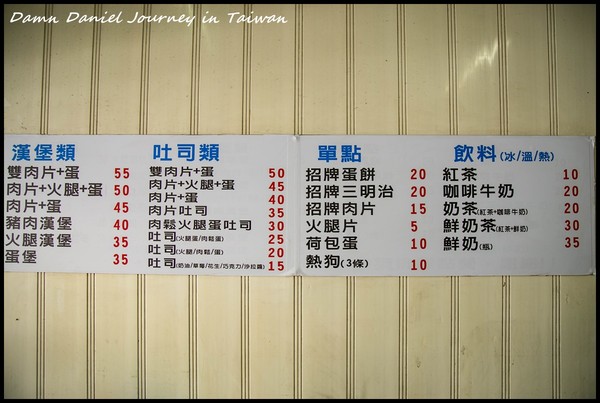 Damn Daniel Journey in Taiwan
漢堡類
雙肉片+蛋 55
肉片+火腿+蛋 50
肉片+蛋 45
豬肉漢堡 40
火腿漢堡 35
蛋堡 35
吐司類
雙肉片+蛋 50
肉片+火腿+蛋 45
肉片+蛋 40
肉片吐司 35
肉鬆火腿蛋吐司 30
吐司(火腿蛋/肉鬆蛋) 25
吐司(火腿/肉鬆/蛋) 20
吐司(奶油/草莓/花生/巧克力/沙拉醬) 15
單點
招牌蛋餅 20
招牌三明治 20
招牌肉片 15
火腿片 5
荷包蛋 10
熱狗(3條) 10
飲料(冰/溫/熱)
紅茶 10
咖啡牛奶 20
奶茶(紅茶+咖啡牛奶) 20
鮮奶茶(紅茶+鮮奶) 30
鮮奶(瓶) 35